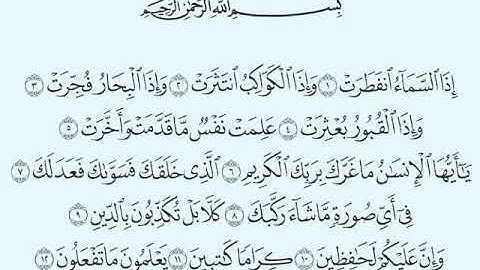 بِسْمِ اللَّهِ الرَّحْمَٰنِ الرَّحِيمِ
إِذَا السَّمَاءُ انفَطَرَتْ ١ وَإِذَا الْكَوَاكِبُ انتَثَرَتْ ٢ وَإِذَا الْبِحَارُ فُجِّرَتْ ٣
وَإِذَا الْقُبُورُ بُعْثِرَتْ ٤ عَلِمَتْ نَفْسٌ مَّا قَدَّمَتْ وَأَخَّرَتْ ٥
يَٰأَيُّهَا الْإِنسَٰنُ مَا غَرَّكَ بِرَبِّكَ الْكَرِيمِ ٦ الَّذِي خَلَقَكَ فَسَوَّىٰكَ فَعَدَلَكَ ٧
فِي أَيِّ صُورَةٍ مَّا شَاءَ رَكَّبَكَ ٨ كَلَّا بَلْ تُكَذِّبُونَ بِالدِّينِ ٩
وَإِنَّ عَلَيْكُمْ لَحَٰفِظِينَ ١٠ كِرَامًا كَٰتِبِينَ ١١ يَعْلَمُونَ مَا تَفْعَلُونَ ١٢